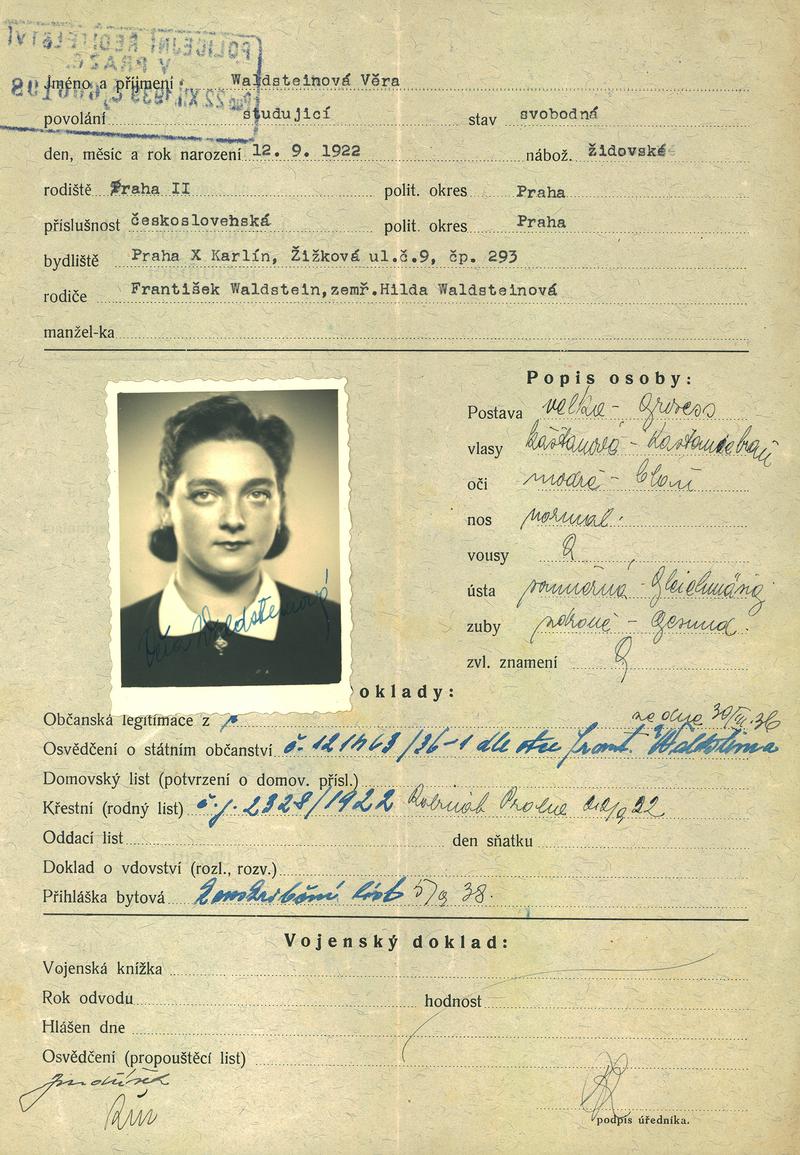 POLICEJNÍ ŘEDITELSTVÍ
V PRAZE
Jméno a příjmení: Waldsteinová Věra
povolání studující stav svobodná
den, měsíc a rok narození 12. 9. 1922 nábož. židovské
rodiště Praha II polit. okres Praha
příslušnost československá polit. okres Praha
bydliště Praha X Karlín, Žižková ul.č.9, čp. 293
rodiče František Waldstein,zemř.Hilda Waldsteinová
manžel-ka
Popis osoby:
Postava velká - Gross
vlasy kaštanová - Kastanebraun
oči modré - blau
nos normal.
vousy
ústa souměrná - Gleichmäsig
zuby zdravé - Gesund.
zvl. znamení
Věra Waldsteinová
Doklady:
Občanská legitimace z ze dne
Osvědčení o státním občanství č. 121463/36-1 dle otce Frant. Waldsteina
Domovský list (potvrzení o domov. přísl.)
Křestní (rodný list) č.j. 2328/1922 Rabinát Praha
Oddací list den sňatku
Doklad o vdovství (rozl., rozv.)
Přihláška bytová Konskribční list 5/9 38.
Vojenský doklad:
Vojenská knížka
Rok odvodu hodnost
Hlášen dne
Osvědčení (propouštěcí list)
podpis úředníka.